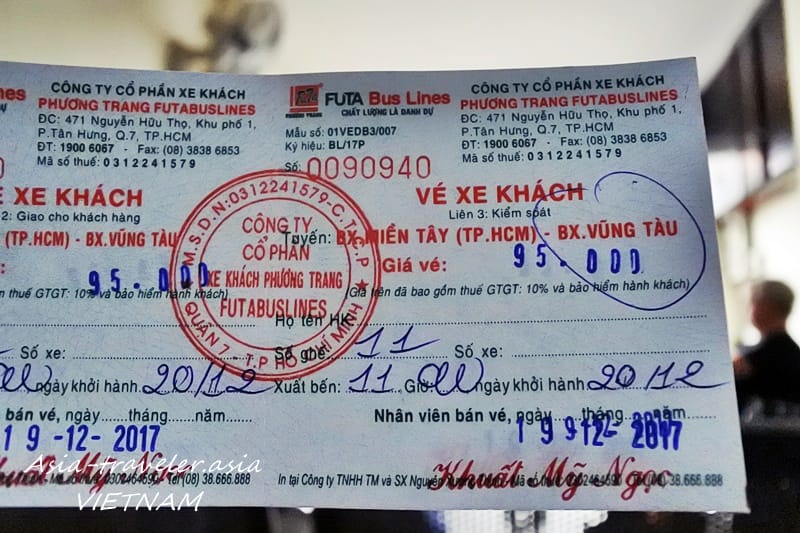 CÔNG TY CỔ PHẦN XE KHÁCH
PHƯƠNG TRANG FUTABUSLINES
ĐC: 471 Nguyễn Hữu Thọ, Khu phố 1,
P.Tân Hưng, Q.7, TP.HCM
ĐT: 1900 6067 - Fax: (08) 3838 6853
Mã số thuế: 0312241579
VÉ XE KHÁCH
2: Giao cho khách hàng
(TP.HCM) - BX.VŨNG TÀU
95.000
thuế GTGT: 10% và bảo hiểm hành khách)
Số xe:
ngày khởi hành 20/12
bán vé, ngày......tháng......năm......
19-12-2017
M.S.D.N:0312241579-C.T.C.P
CÔNG TY
CỔ PHẦN
XE KHÁCH PHƯƠNG TRANG
FUTABUSLINES
QUẬN 7 - T.P HỒ CHÍ MINH
FUTA Bus Lines
CHẤT LƯỢNG LÀ DANH DỰ
Mẫu số: 01VEDB3/007
Ký hiệu: BL/17P
Số: 0090940
CÔNG TY CỔ PHẦN XE KHÁCH
PHƯƠNG TRANG FUTABUSLINES
ĐC: 471 Nguyễn Hữu Thọ, Khu phố 1,
P.Tân Hưng, Q.7, TP.HCM
ĐT: 1900 6067 - Fax: (08) 3838 6853
Mã số thuế: 0312241579
VÉ XE KHÁCH
Liên 3: Kiểm soát
Tuyến: BX.MIỀN TÂY (TP.HCM) - BX.VŨNG TÀU
Giá vé: 95.000
(Giá trên đã bao gồm thuế GTGT: 10% và bảo hiểm hành khách)
Họ tên HK
Số ghế: 11 Số xe:
Xuất bến: 11 Giờ ngày khởi hành 20/12
Nhân viên bán vé, ngày......tháng......năm
19-12-2017
Khuất Mỹ Ngọc
In tại Công ty TNHH TM và SX Nguyễn
38.666.888
Asia-traveler.asia
VIETNAM